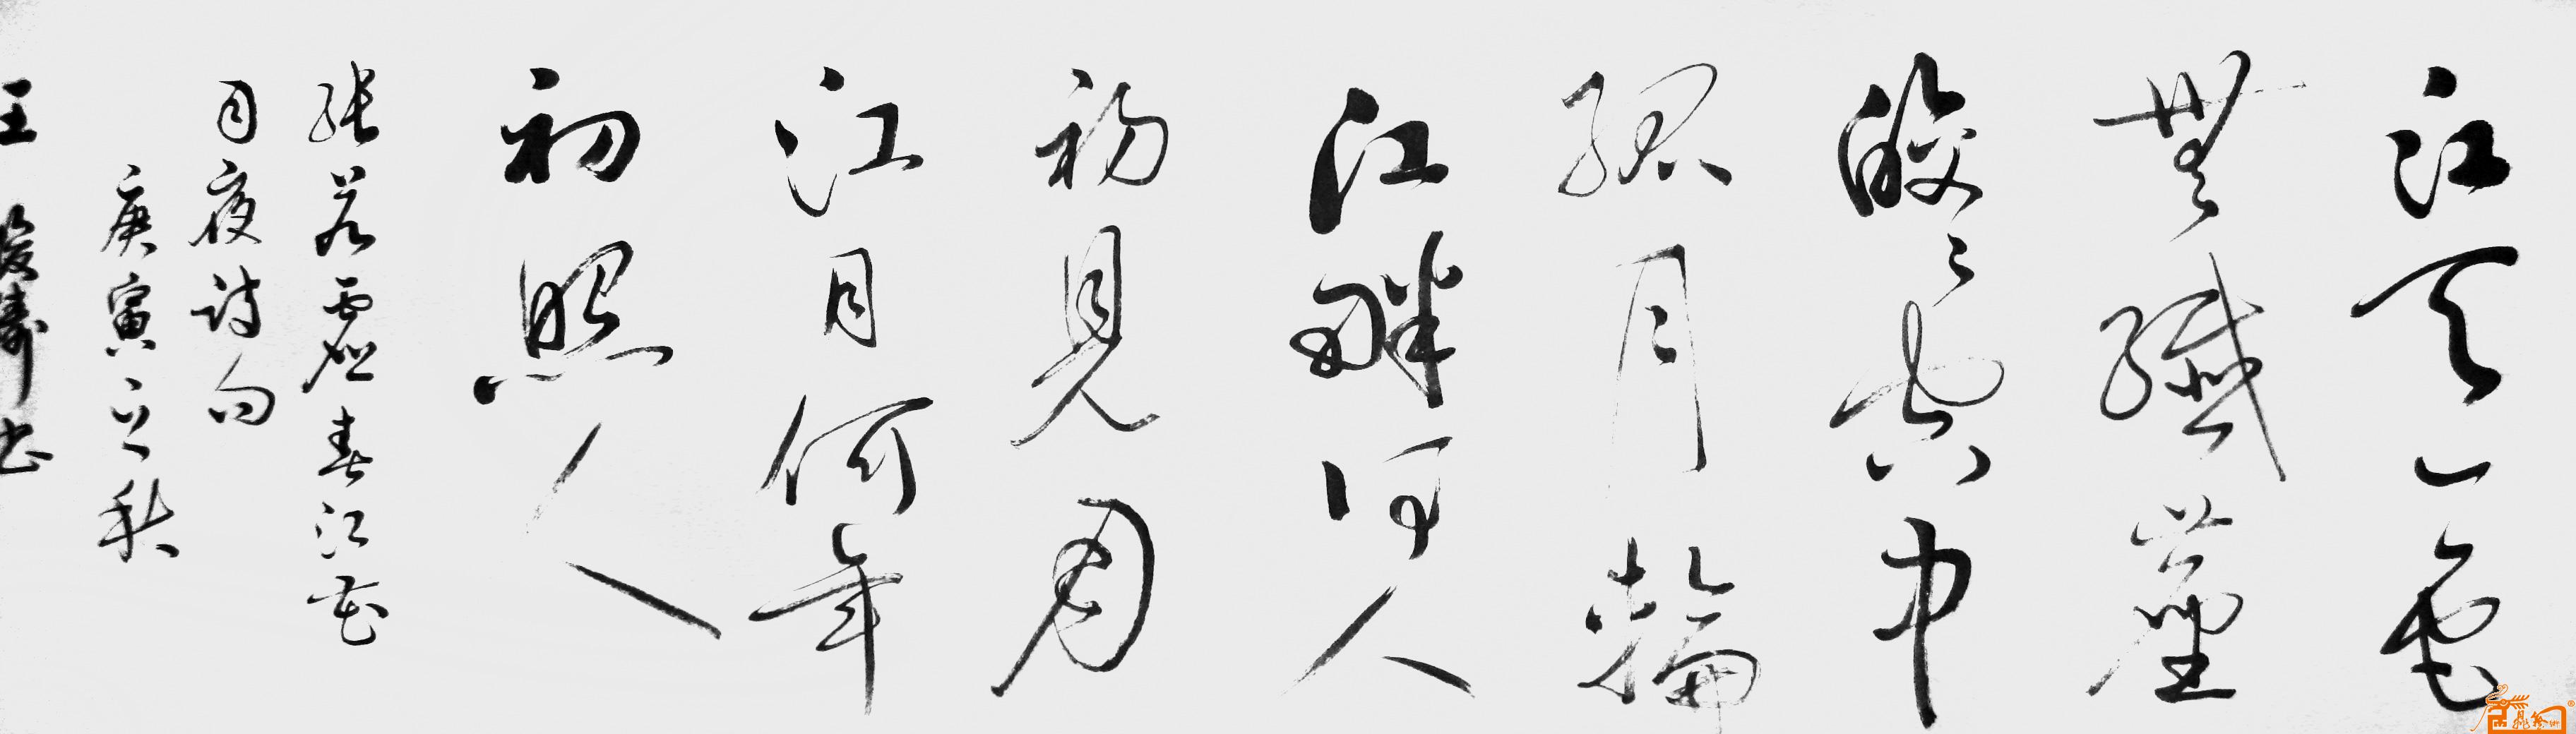 江天一色
無纖塵
皎々空中
孤月輪
江畔何人
初見月
江月何年
初照人
张若虚春江花
月夜诗句
庚寅立秋
王 书